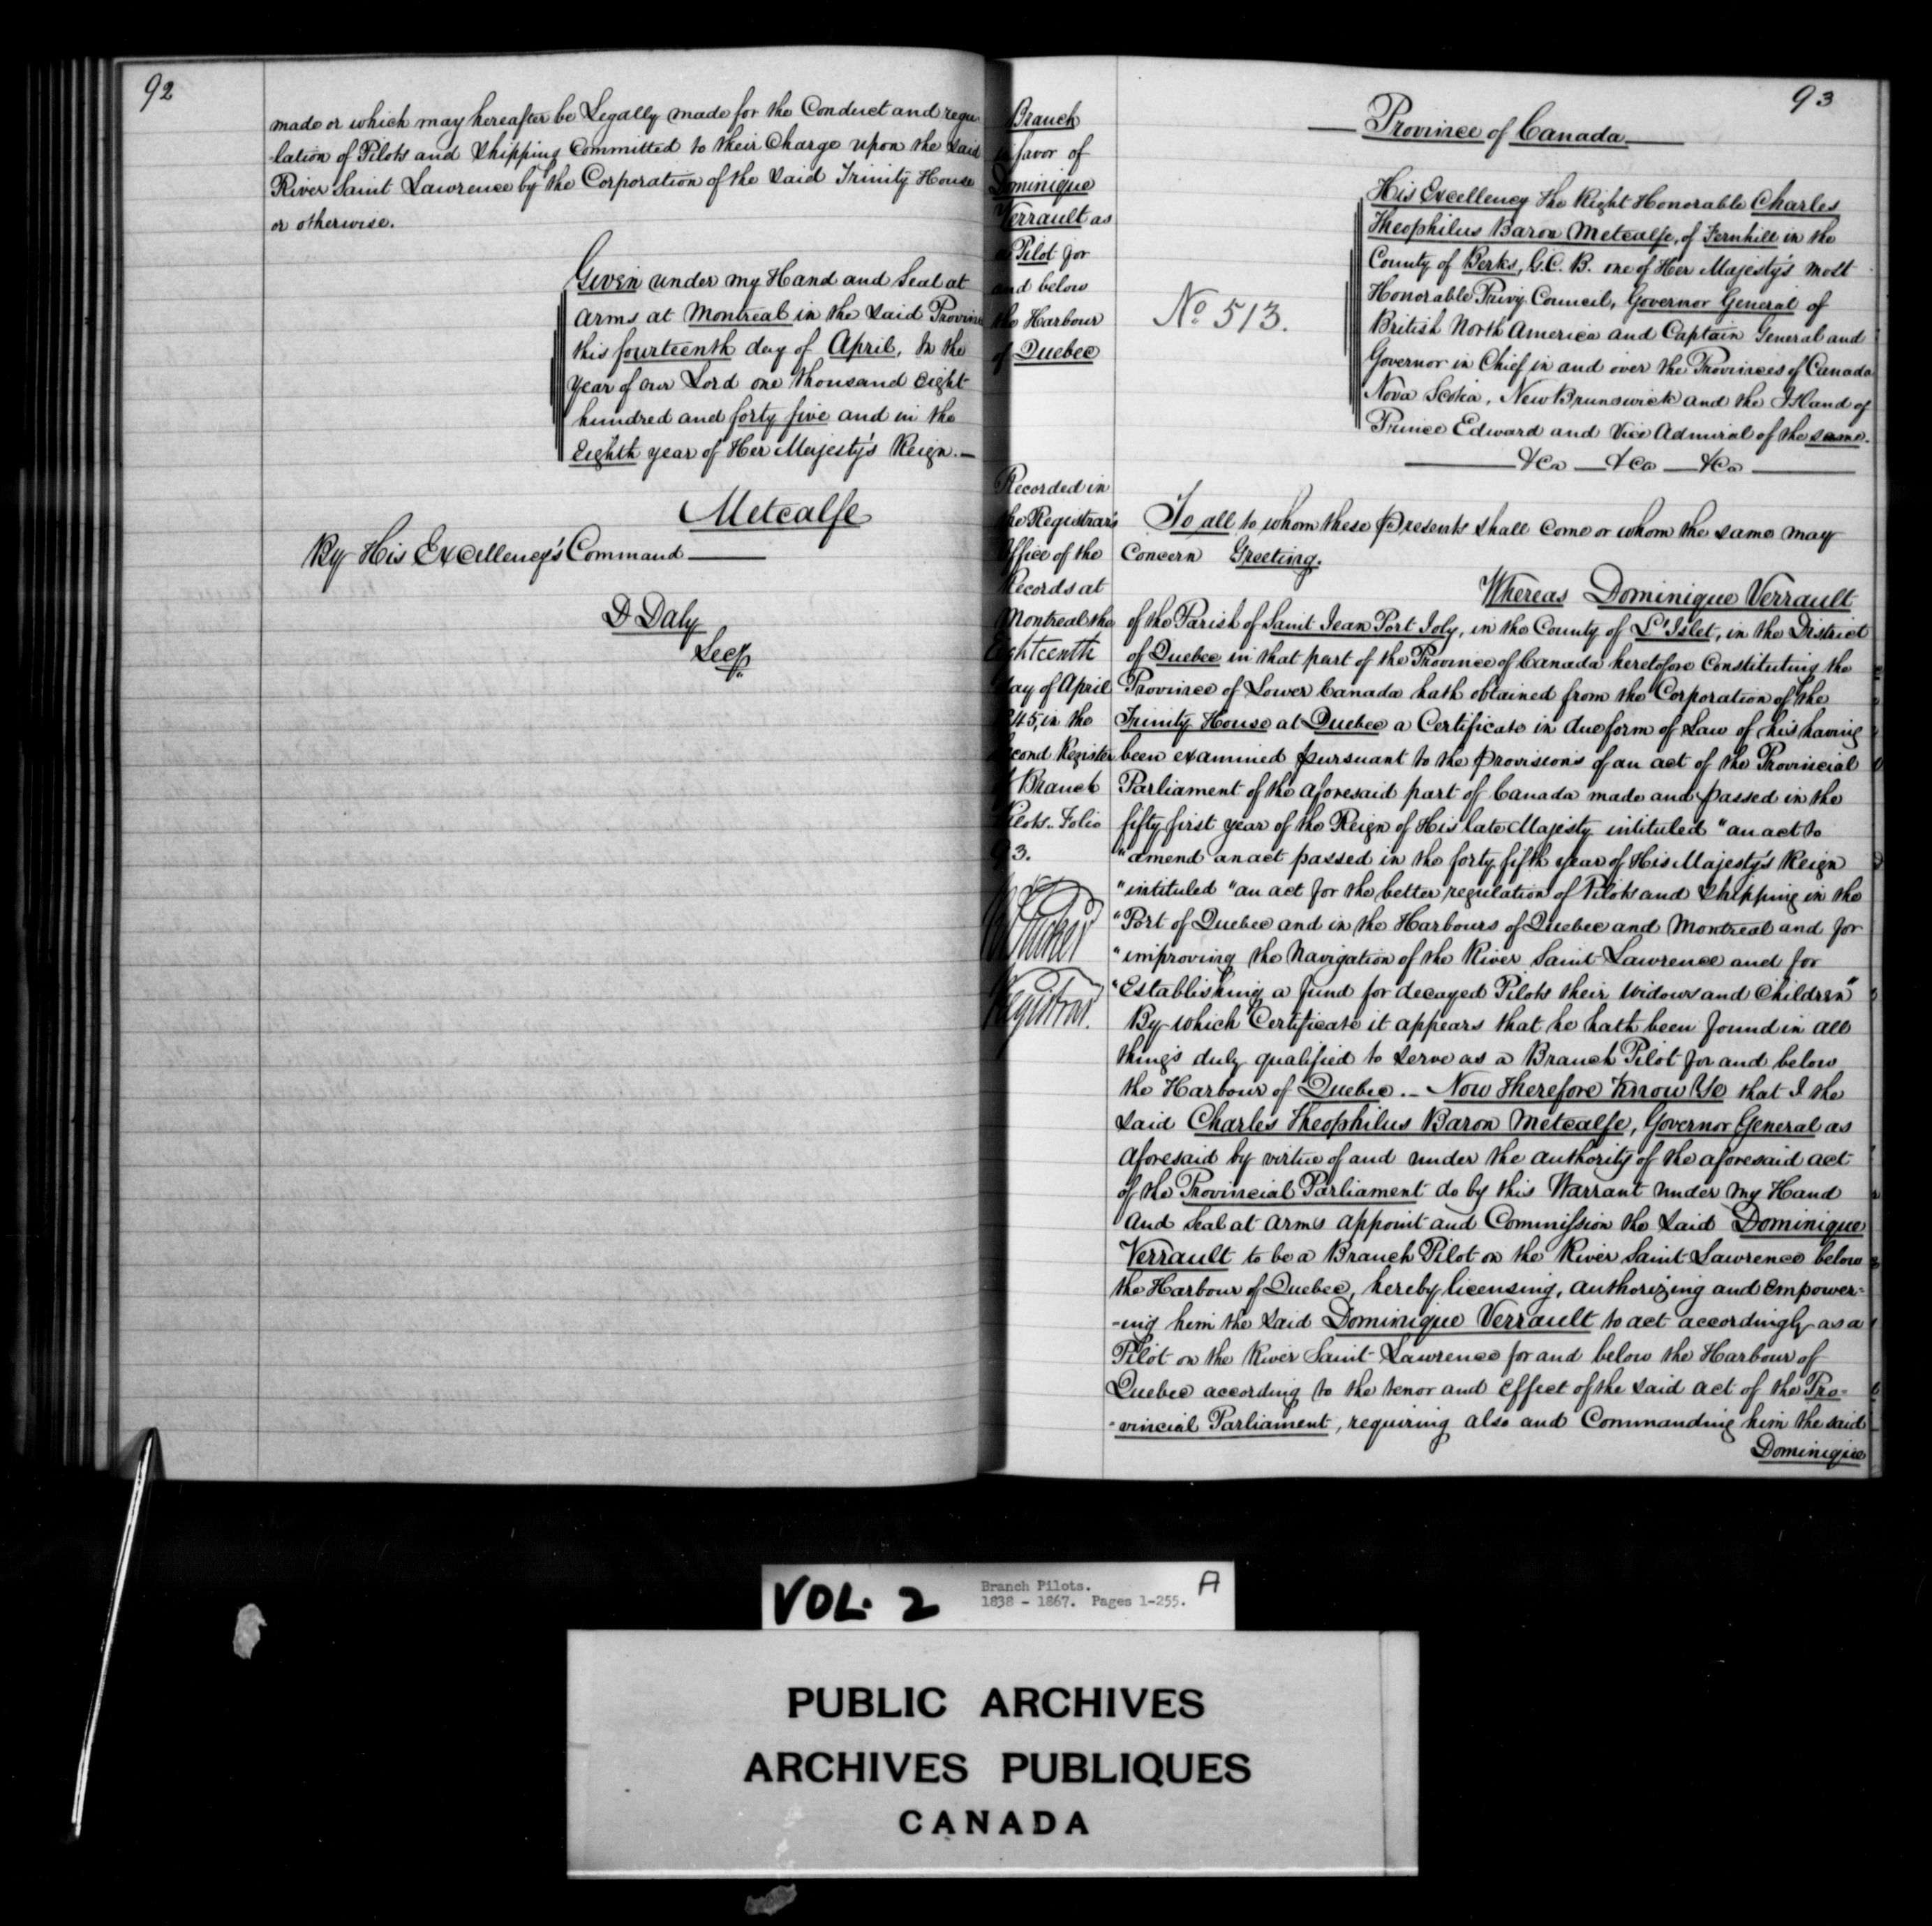 92
made or which may hereafter be Legally made for the Conduct and regu
-lation of Pilots and Shipping Committed to their Charge upon the said
River Saint Lawrence by the Corporation of the said Trinity House
or otherwise.
Given under my Hand and Seal at
Arms at Montreal in the said Province
this fourteenth day of April, In the
Year of our Lord one thousand Eight
hundred and forty five and in the
Eighth year of Her Majesty's Reign.—
Metcalfe
By His Excellency's Command
D Daly
Secy.
93
Branch
in favor of
Dominique
Verrault as
a Pilot for
and below
the Harbour
of Quebec
Recorded in
the Registrar's
Office of the
Records at
Montreal the
Eighteenth
day of April
1845, in the
Second Register
of Branch
Pilots.. Folio
93.
Registrar.
No 513.
Province of Canada
His Excellency the Right Honorable Charles
Theophilus Baron Metcalfe, of Fernhill in the
County of Berks, G.C.B. one of Her Majesty's most
Honorable Privy Council, Governor General of
British North America and Captain General and
Governor in Chief in and over the Provinces of Canada
Nova Scotia, New Brunswick and the Island of
Prince Edward and Vice Admiral of the same.
&Ca — &Ca — &Ca
To all to whom these Presents shall come or whom the same may
Concern Greeting.
Whereas Dominique Verrault
of the Parish of Saint Jean Port Joly, in the County of L'Islet, in the District
of Quebec in that part of the Province of Canada heretofore Constituting the
Province of Lower Canada hath obtained from the Corporation of the
Trinity House at Quebec a Certificate in due form of Law of his having
been examined pursuant to the provisions of an act of the Provincial
Parliament of the aforesaid part of Canada made and passed in the
fifty first year of the Reign of His late Majesty intituled "an act to
"amend an act passed in the forty fifth year of His Majesty's Reign
"intituled "an act for the better regulation of Pilots and Shipping in the
"Port of Quebec and in the Harbours of Quebec and Montreal and for
"improving the Navigation of the River Saint Lawrence and for
"Establishing a fund for decayed Pilots their Widows and Children"
By which Certificate it appears that he hath been found in all
things duly qualified to serve as a Branch Pilot for and below
the Harbour of Quebec.— Now Therefore Know Ye that I the
said Charles Theophilus Baron Metcalfe, Governor General as
aforesaid by virtue of and under the authority of the aforesaid act
of the Provincial Parliament do by this Warrant under my Hand
and Seal at Arms appoint and Commission the said Dominique
Verrault to be a Branch Pilot on the River Saint Lawrence below
the Harbour of Quebec, hereby licensing, authorizing and empower=
-ing him the said Dominique Verrault to act accordingly as a
Pilot on the River Saint Lawrence for and below the Harbour of
Quebec according to the tenor and Effect of the said act of the Pro=
=vincial Parliament, requiring also and Commanding him the said
Dominique
VOL. 2
Branch Pilots.
1838 - 1867. Pages 1-255.
A
PUBLIC ARCHIVES
ARCHIVES PUBLIQUES
CANADA